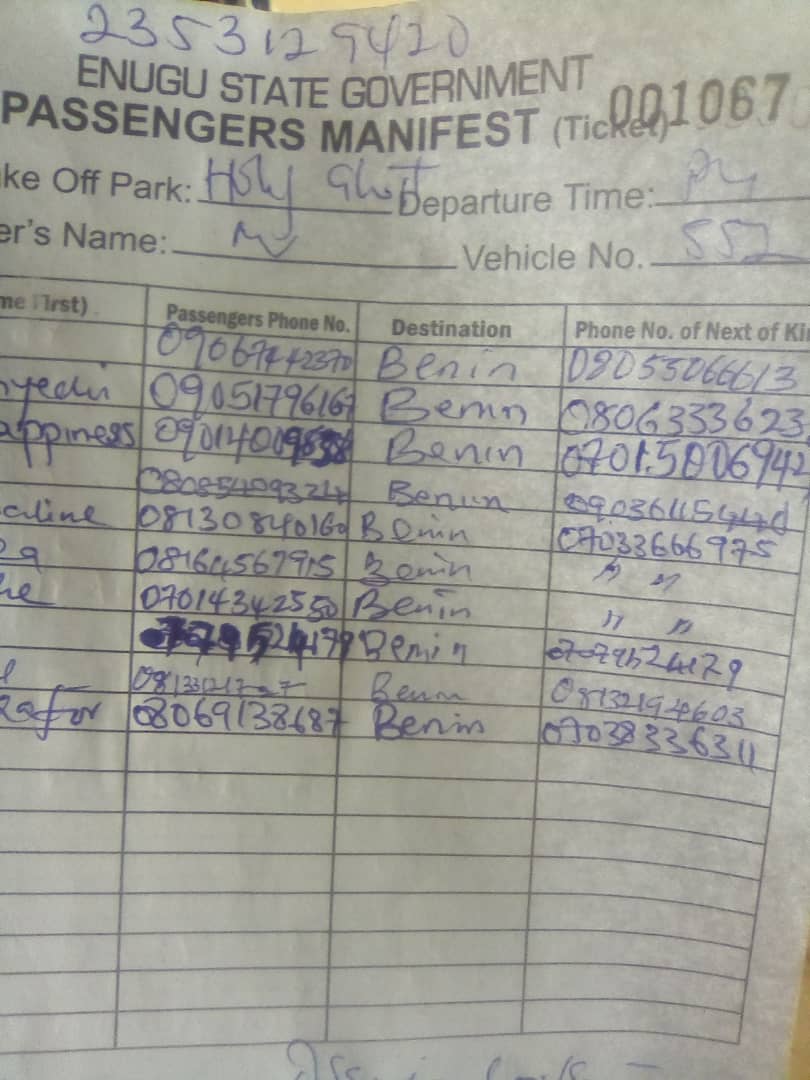 2353129420
ENUGU STATE GOVERNMENT
PASSENGERS MANIFEST (Ticket) 001067
ke Off Park: Holy Ghost Departure Time:
er's Name: Vehicle No. 552
me First) Passengers Phone No. Destination Phone No. of Next of Ki
09067442370 Benin 08055066613
yedi 09051796167 Benin 0806333623
appiness Benin 07015006942
Benin
aline 08130840160 Benin 07033666975
08164567915 Benin " "
he 07014342550 Benin " "
Benin 07079524179
l Benin 081321924603
kafor 08069138687 Benin 07038336311